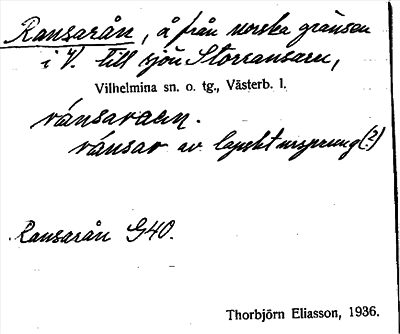 Ransarån, å från norska gränsen
i V. till sjön Storransarn,
Vilhelmina sn. o. tg., Västerb. l.
ránsaraen.
ránsar av lapskt ursprung(?)
Ransarån G40.
Thorbjörn Eliasson, 1936.